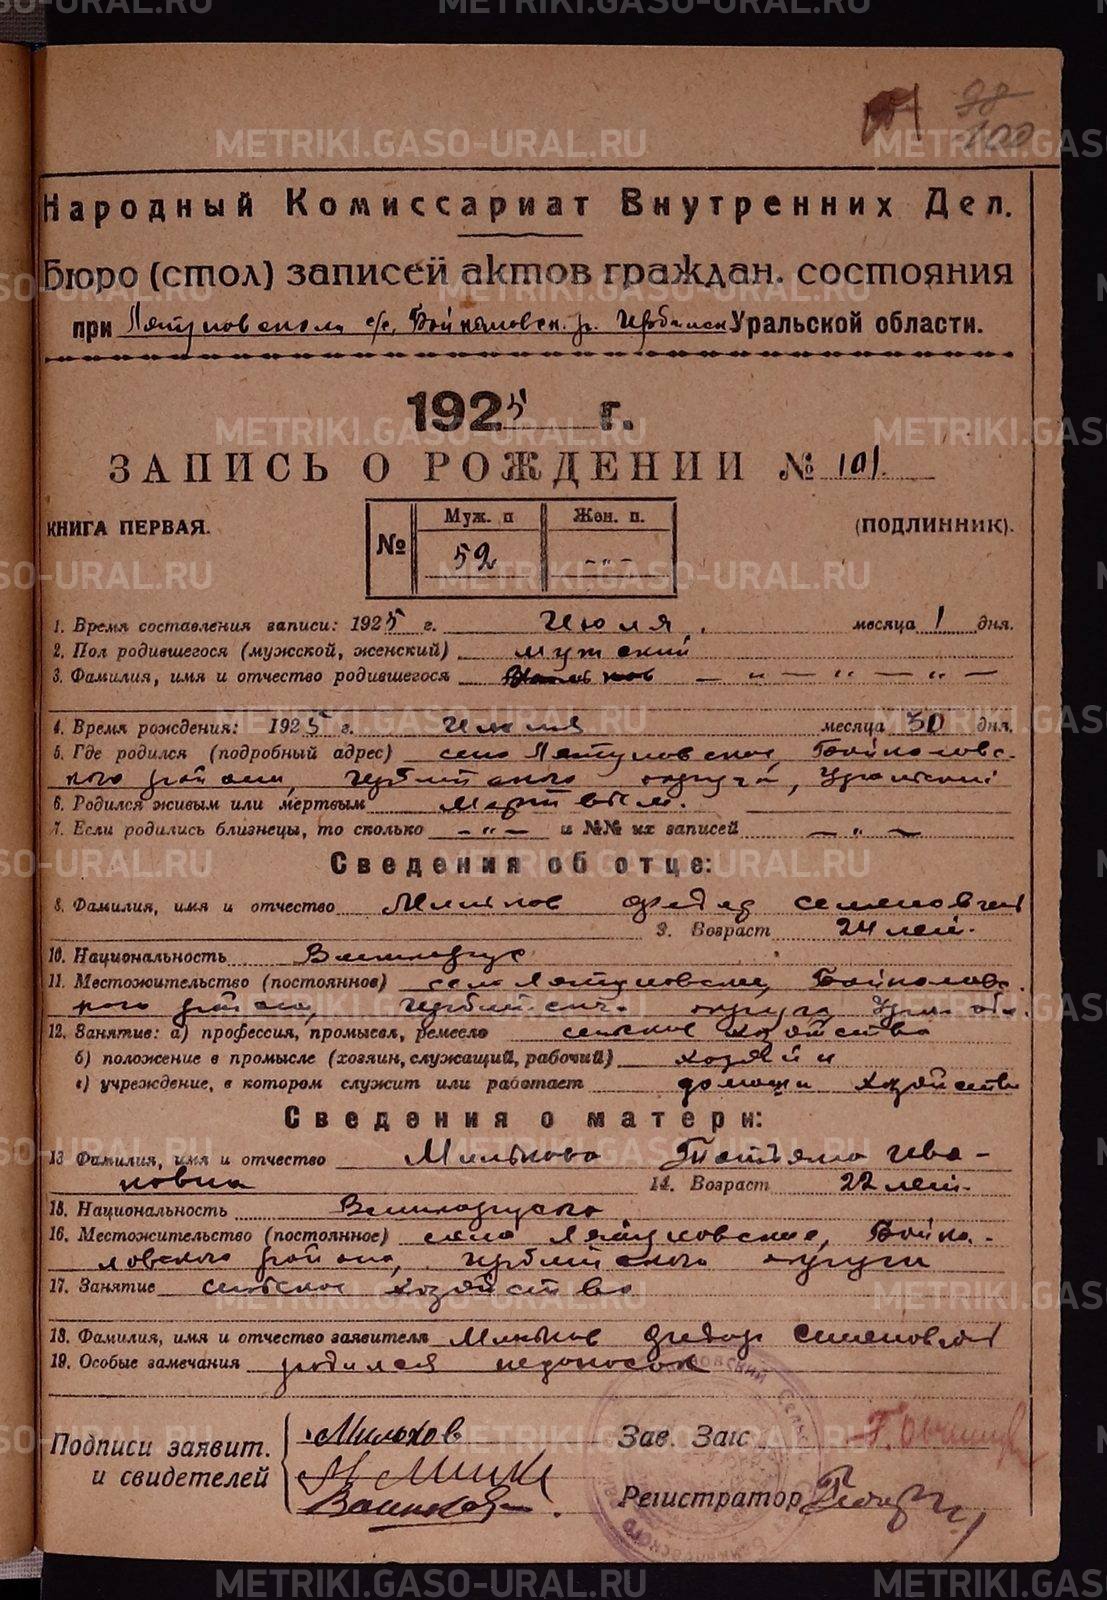 98
100
Народный Комиссариат Внутренних Дел.
Бюро (стол) записей актов граждан. состояния
при Ляпуновском с/с, Байкаловск. р. Ирбитск Уральской области.
1925 г.
ЗАПИСЬ О РОЖДЕНИИ № 101.
Муж. п Жен. п.
КНИГА ПЕРВАЯ. № (ПОДЛИННИК).
52 -"-
1. Время составления записи: 1925 г. Июля, месяца 1 дня.
2. Пол родившегося (мужской, женский) мужский
3. Фамилия, имя и отчество родившегося — " — " — " —
4. Время рождения: 1925 г. июня месяца 30 дня.
5. Где родился (подробный адрес) село Ляпуновское, Байкаловс-
кого района, Ирбитского округа,
6. Родился живым или мертвым мертвым.
7. Если родились близнецы, то сколько — " — и №№ их записей — " —
Сведения об отце:
8. Фамилия, имя и отчество Мильков Федор Семенович
9. Возраст 24 лет.
10. Национальность Великорус
11. Местожительство (постоянное) село Ляпуновское, Байкаловс-
кого района, Ирбитск. округа Урал. обл.
12. Занятие: а) профессия, промысел, ремесло сельское хозяйство
б) положение в промысле (хозяин, служащий, рабочий) хозяин
в) учреждение, в котором служит или работает хозяйстве
Сведения о матери:
13 Фамилия, имя и отчество Милькова Татьяна Ива-
новна 14. Возраст 22 лет.
15. Национальность Великорусска
16. Местожительство (постоянное) село Ляпуновское, Байка-
ловского района, Ирбитского округа
17. Занятие сельское хозяйство
18. Фамилия, имя и отчество заявителя Мильков Федор Семенович
19. Особые замечания родился недоносок
Подписи заявит. Мильков Зав. Загс
и свидетелей
Регистратор
METRIKI.GASO-URAL.RU